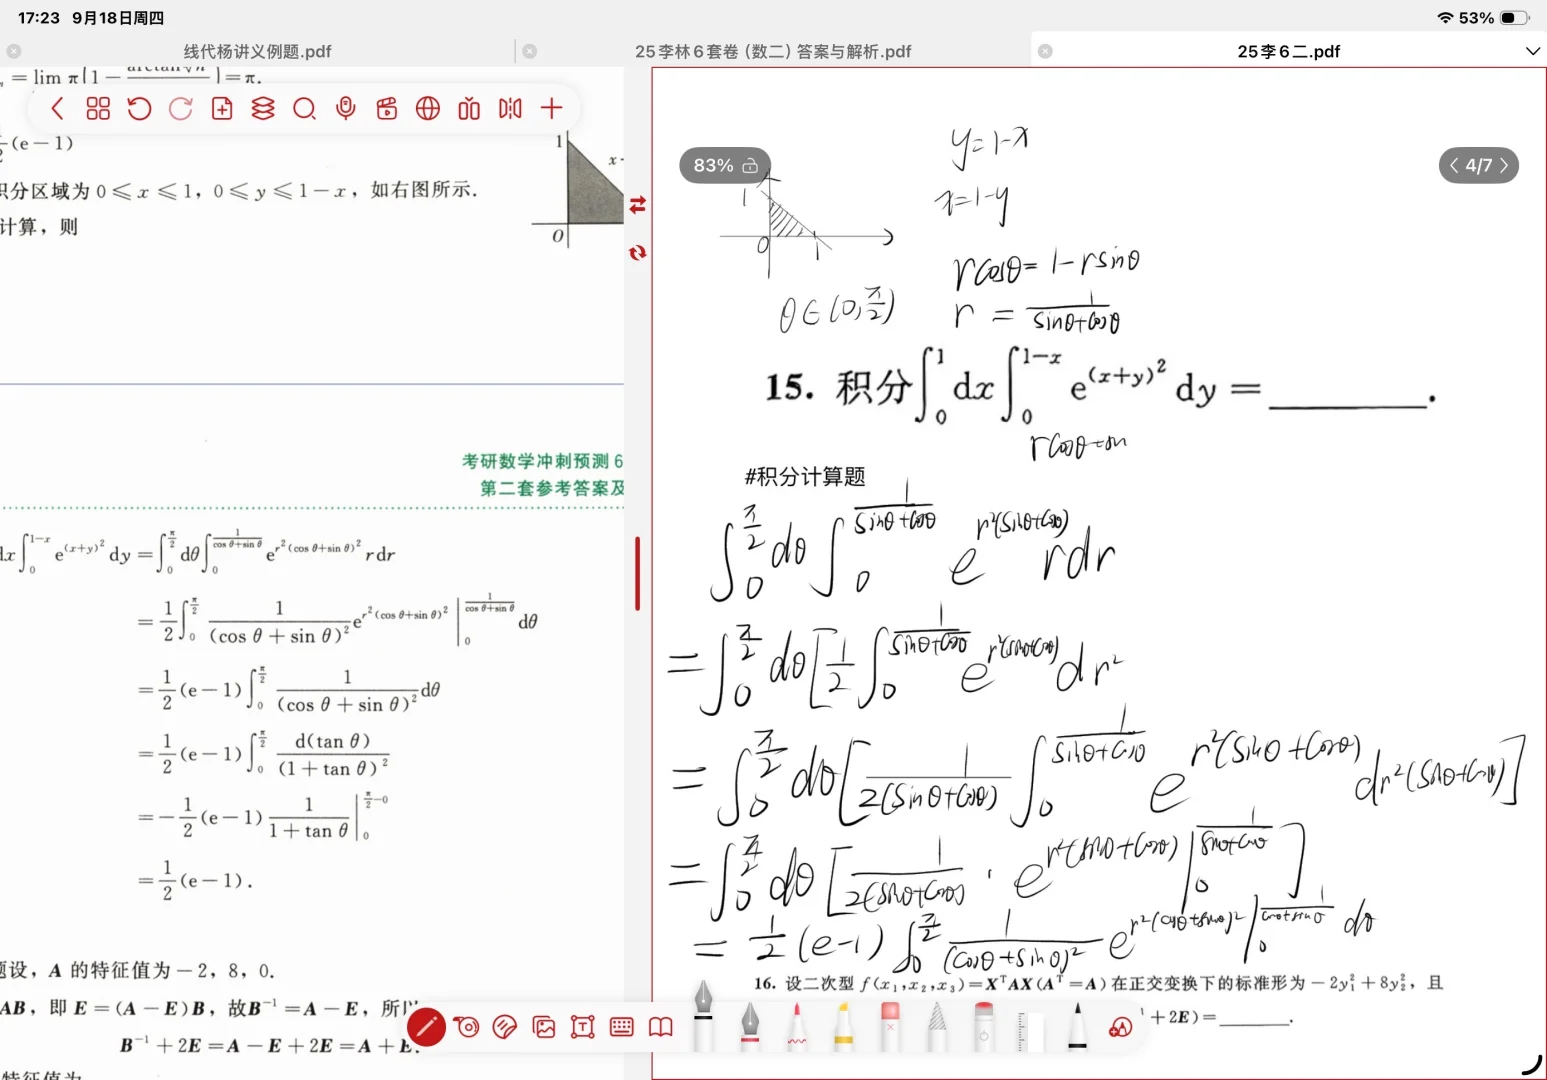 17:23 9月18日周四
53%
线代杨讲义例题.pdf
25李林6套卷 (数二) 答案与解析.pdf
25李6二.pdf
= lim π(1 − arctan√n ) = π.
(e − 1)
积分区域为 0 ⩽ x ⩽ 1, 0 ⩽ y ⩽ 1 − x, 如右图所示.
计算, 则
1
x
O
考研数学冲刺预测 6
第二套参考答案及
dx∫₀^{1−x} e^{(x+y)²} dy = ∫₀^{π/2} dθ∫₀^{1/(cos θ+sin θ)} e^{r²(cos θ+sin θ)²} r dr
= 1/2 ∫₀^{π/2} 1/(cos θ + sin θ)² e^{r²(cos θ+sin θ)²} |₀^{1/(cos θ+sin θ)} dθ
= 1/2 (e − 1)∫₀^{π/2} 1/(cos θ + sin θ)² dθ
= 1/2 (e − 1)∫₀^{π/2} d(tan θ)/(1 + tan θ)²
= − 1/2 (e − 1) 1/(1 + tan θ) |₀^{π/2−0}
= 1/2 (e − 1).
题设, A 的特征值为 − 2, 8, 0.
AB, 即 E = (A − E)B, 故B⁻¹ = A − E, 所以
B⁻¹ + 2E = A − E + 2E = A + E.
特征值为
83%
4/7
y=1-x
x=1-y
1
0
1
rcosθ = 1-rsinθ
θ∈(0,π/2)
r = 1/(sinθ+cosθ)
15. 积分∫₀¹ dx ∫₀^{1−x} e^{(x+y)²} dy = ________.
rcosθ+sin
#积分计算题
∫₀^{π/2} dθ ∫₀^{1/(sinθ+cosθ)} e^{r²(sinθ+cosθ)} rdr
= ∫₀^{π/2} dθ [1/2 ∫₀^{1/(sinθ+cosθ)} e^{r²(sinθ+cosθ)} dr²
= ∫₀^{π/2} dθ [1/(2(sinθ+cosθ)) ∫₀^{1/(sinθ+cosθ)} e^{r²(sinθ+cosθ)} dr²(sinθ+cosθ)]
= ∫₀^{π/2} dθ [1/(2(sinθ+cosθ)) · e^{r²(sinθ+cosθ)} |₀^{1/(sinθ+cosθ)}]
= 1/2 (e-1) ∫₀^{π/2} 1/(cosθ+sinθ)² e^{r²(cosθ+sinθ)²} |₀^{1/(cosθ+sinθ)} dθ
16. 设二次型 f(x₁,x₂,x₃)=XᵀAX(Aᵀ=A)在正交变换下的标准形为 −2y₁²+8y₂², 且
+2E)=________.